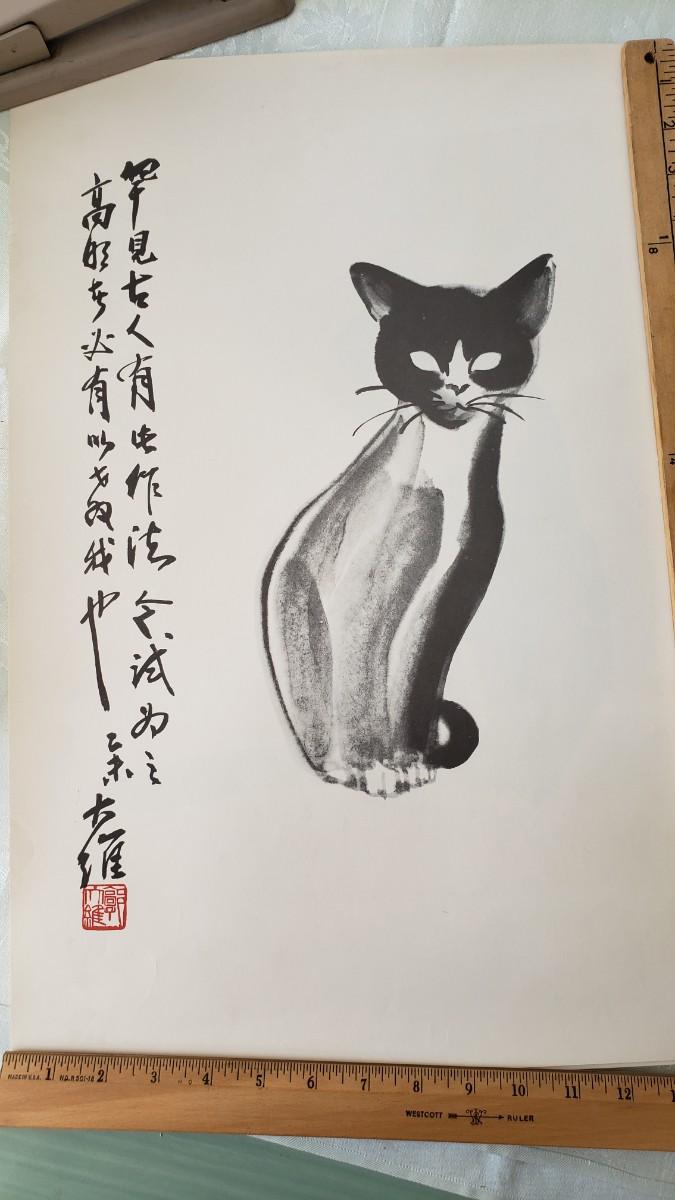 罕見古人有此作法今試為之
高明者必有以教我也
乙未大維
郭大維
MADE IN U.S.A.
1 2 3 4 5 6 7 8 9 10 11 12
WESTCOTT RULER